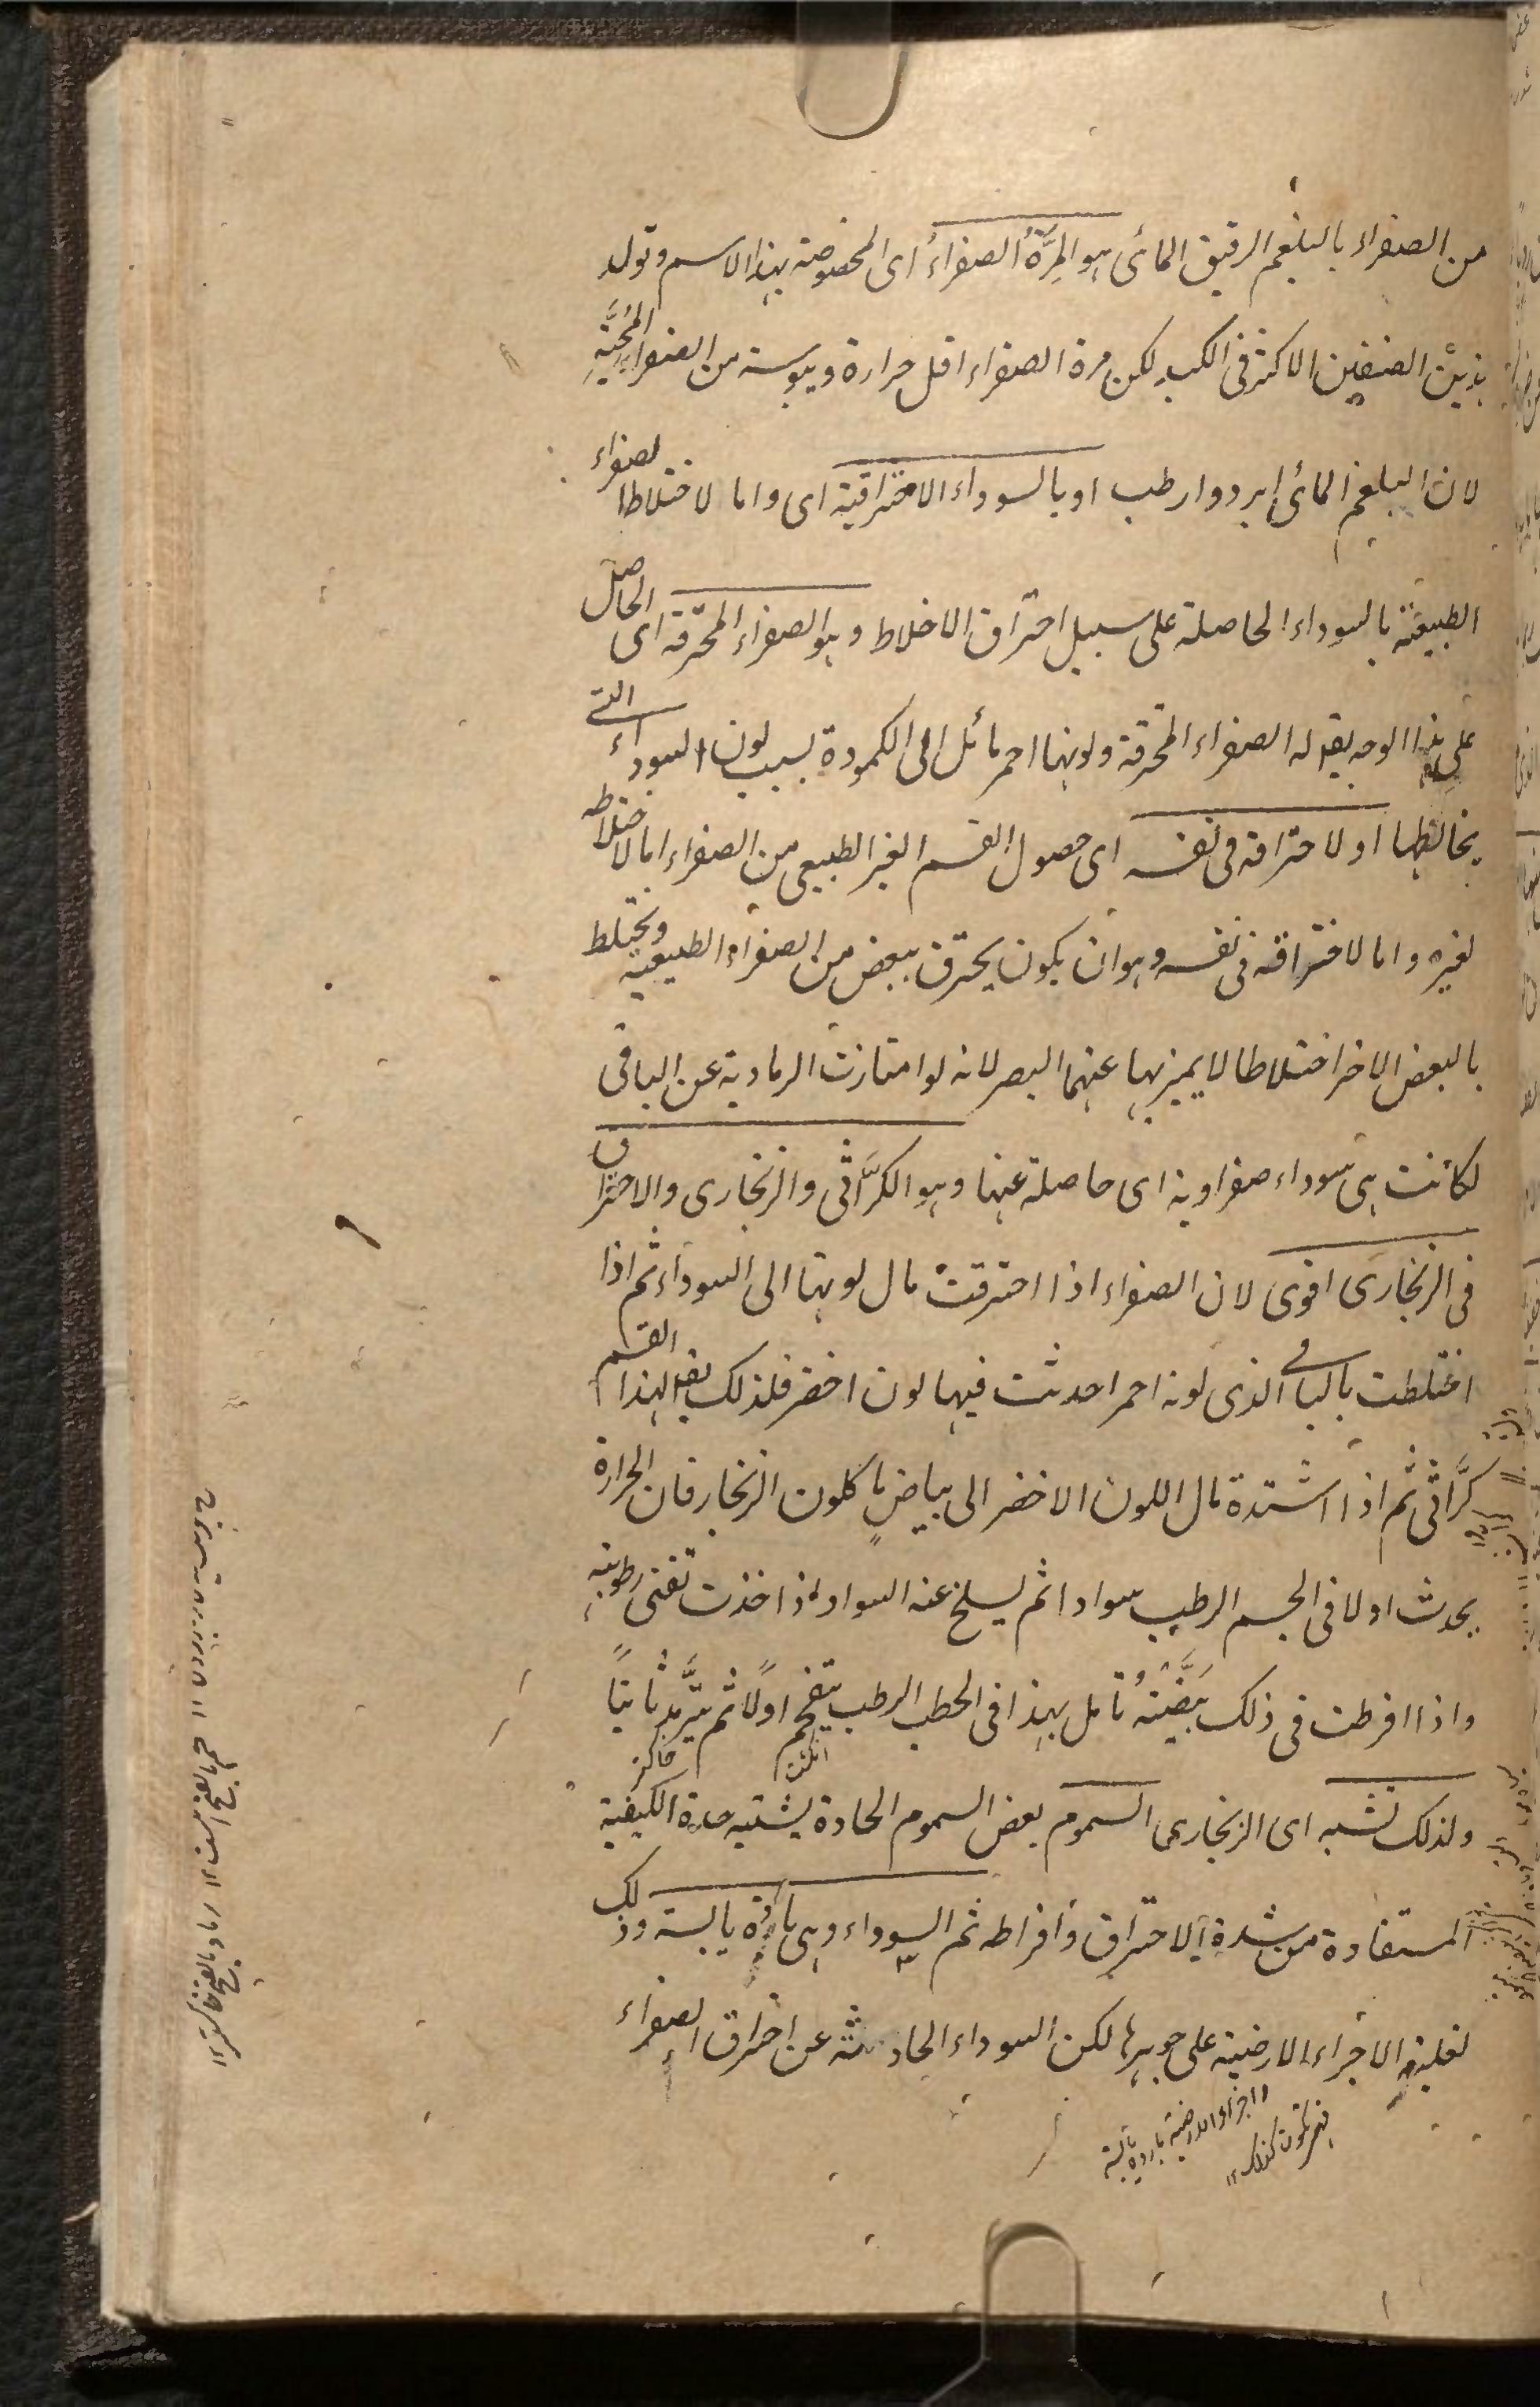 من الصفراء بالبلغم الرقيق المائى هو المِرَّةُ الصفراءُ اى المخصوصة بهذا الاسم وتولد
هذين الصنفين الاكثر فى الكبد لكن مرة الصفراء اقل حرارة ويبوسة من الصفراء المُحِّيَّة
لان البلغم المائى ابرد وارطب او بالسوداء الاحتراقية اى واما لاختلاط الصفراء
الطبيعية بالسوداء الحاصلة على سبيل احتراق الاخلاط وهو الصفراء المحترقة اى الحاصل
على هذا الوجه يقد له الصفراء المحترقة ولونها احمر مائل الى الكمودة لسبب لون السوداء التى
يخالطها او لاحتراقه فى نفسه اى حصول القسم الغير الطبيعى من الصفراء اما لاختلاطه
لغيره واما لاحتراقه فى نفسه وهو ان يكون يحترق ببعض من الصفراء الطبيعية ويختلط
بالبعض الاخر اختلاطا لا يميز بها عنهما البصر لانه لو امتازت الرمادية عن الباقى
لكانت هى سوداء صفراوية اى حاصلة عنها وهو الكرَّاثى والزنجارى والاحتراق
فى الزنجارى اقوى لان الصفراء اذا احترقت مال لونها الى السوداء ثم اذا
اختلطت بالباقى الذى لونه احمر احدثت فيها لون اخضر فلذلك يقد لهذا القسم
كرَّاثى ثم اذا اشتدة مال اللون الاخضر الى بياضٍ ما كلون الزنجار فان الحرارة
يحدث اولا فى الجسم الرطب سوادا ثم يسلخ عنه السواد اذا اخذت تفنى رطوبته
واذا افرطت فى ذلك بَيَّضَتْهُ تامل بهذا فى الحطب الرطب يتفحم اولًا ثم يترَّمد ثانيًا
انگشت
خاكستر
ولذلك تشبه اى الزنجارى السموم بعض السموم الحادة يشتبه حدة الكيفية
المستفادة من شدة الاحتراق وافراطه ثم السوداء وهى باردة يابسة وذلك
لغلبة الاجزاء الارضية على جوهرها لكن السوداء الحادثة عن احتراق الصفراء
واجزاء الارضية باردة يابسة